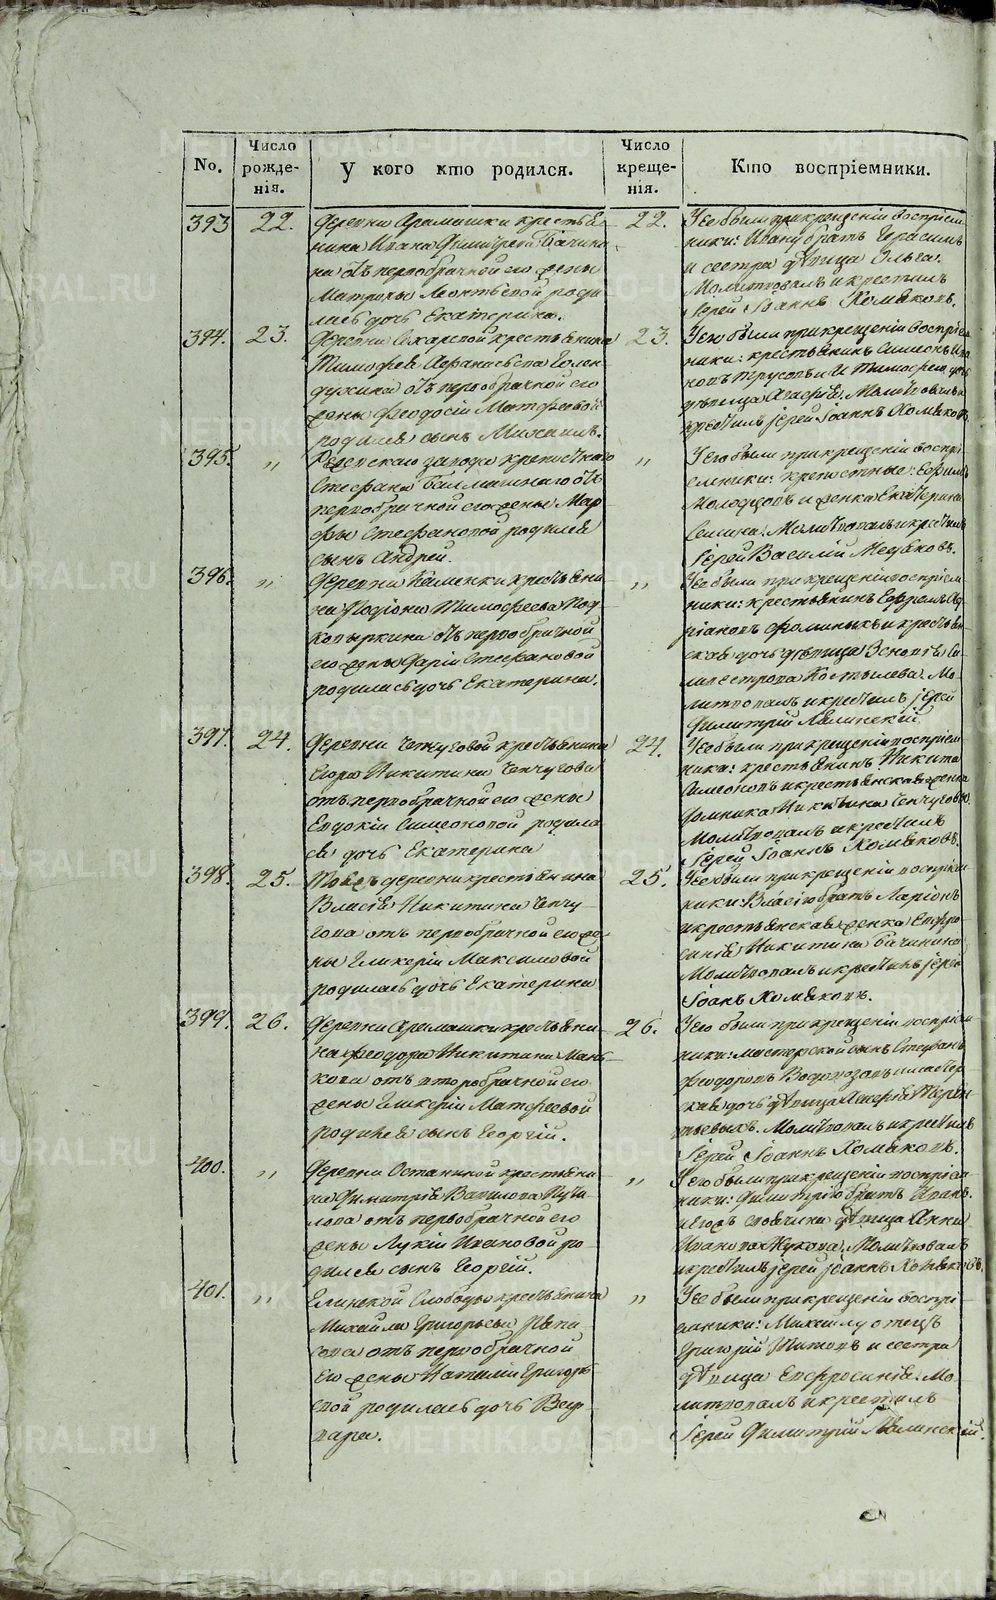 No.
Число рожде-нія.
У кого кто родился.
Число креще-нія.
Кто воспріемники.
393
22.
Деревни Арамашки кресть я-
нина Ивана Димитріева Бачини-
на отъ первобрачной его жены
Матроны Леонтьевой роди-
лась дочь Екатерина.
22.
У ее были при крещеніи воспріем-
ники: Ивану братъ Герасимъ
и сестра дѣвица Ольга.
Молитвовалъ и крестилъ
Іерей Іоаннъ Хомяковъ.
394.
23.
Деревни крестьянина
Тимофея Афанасьева Голен-
духина отъ первобрачной его
жены Феодосіи Матфеевой
родился сынъ Михаилъ.
23.
У его были при крещеніи воспріем
ники: крестьянинъ Симеонъ Ива
новъ и Тимофею дочь
дѣвица Агафія. Молитвовалъ и
крестилъ Іерей Іоаннъ Хомяковъ.
395.
"
Режевскаго завода крепостнаго
Стефана отъ
первобрачной его жены Мар-
фы Стефановой родился
сынъ Андрей.
"
У его были при крещеніи воспрі-
емники: крепостные: Ефимъ
и женка Екатерина
Молитвовалъ и крестилъ
Іерей Василій
396.
"
Деревни Каменки крестьяни-
на Родіона Тимофеева Под-
копыркина отъ первобрачной
его жены Даріи Стефановой
родилась дочь Екатерина.
"
У ее были при крещеніи воспріем
ники: крестьянинъ Ефремъ Ад-
ріановъ Фоминыхъ и крестьян-
ская дочь дѣвица Ксенія Си-
ливестрова Костылева. Мо-
литвовалъ и крестилъ Іерей
Димитрій Ляпинскій.
397.
24.
Деревни Ченчуговой крестьянина
Егора Никитина Ченчугова
отъ первобрачной его жены
Евдокіи Симеоновой родила-
ся дочь Екатерина
24.
У ее были при крещеніи воспріем
ники: крестьянинъ Никита
Симеоновъ и крестьянская женка
Домника Никитина Ченчуговы.
Молитвовалъ и крестилъ
Іерей Іоаннъ Хомяковъ.
398.
25.
Тояжъ деревни крестьянина
Власія Никитина Ченчу-
гова отъ первобрачной его же-
ны Гликеріи Максимовой
родилась дочь Екатерина
25.
У ее были при крещеніи воспріем
ники: Власію братъ Ларіонъ
и крестьянская женка Евфро-
синія Никитина Бачинина
Молитвовалъ и крестилъ Іерей
Іоанъ Хомяковъ.
399.
26.
Деревни Арамашки крестьяни-
на Феодора Никитина Мань-
кова отъ второбрачной его
жены Гликеріи Матфеевой
родился сынъ Георгій.
26.
У его были при крещеніи воспріем
ники: мастерской сынъ Стефанъ
Феодоровъ и мастер-
ская дочь дѣвица
Молитвовалъ и крестилъ
Іерей Іоаннъ Хомяковъ.
400.
"
Деревни Останиной крестьяни-
на Димитрія Вавилова
отъ первобрачной его
жены Лукіи Ивановой ро-
дился сынъ Георгій.
"
У его были при крещеніи воспріем
ники: Димитрію братъ Иванъ.
дѣвица Анна
Иванова Жукова. Молитвовалъ
и крестилъ Іерей Іоаннъ Хомяковъ.
401.
"
Глинской Слободы крестьянина
Михаила Григорьева Рѣпи-
сова отъ первобрачной
его жены Наталіи Григорь-
евой родилась дочь Вар-
вара.
"
У ее были при крещеніи воспрі-
емники: Михаилу отецъ
Григорій Титовъ и сестра
дѣвица Евфросинія. Мо-
литвовалъ и крестилъ
Іерей Димитрій Ляпинскій.
METRIKI.GASO-URAL.RU